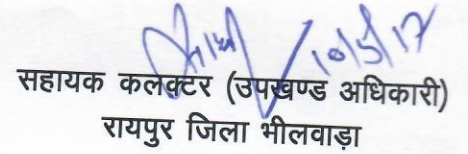 10/5/17
सहायक कलेक्टर (उपखण्ड अधिकारी)
रायपुर जिला भीलवाड़ा